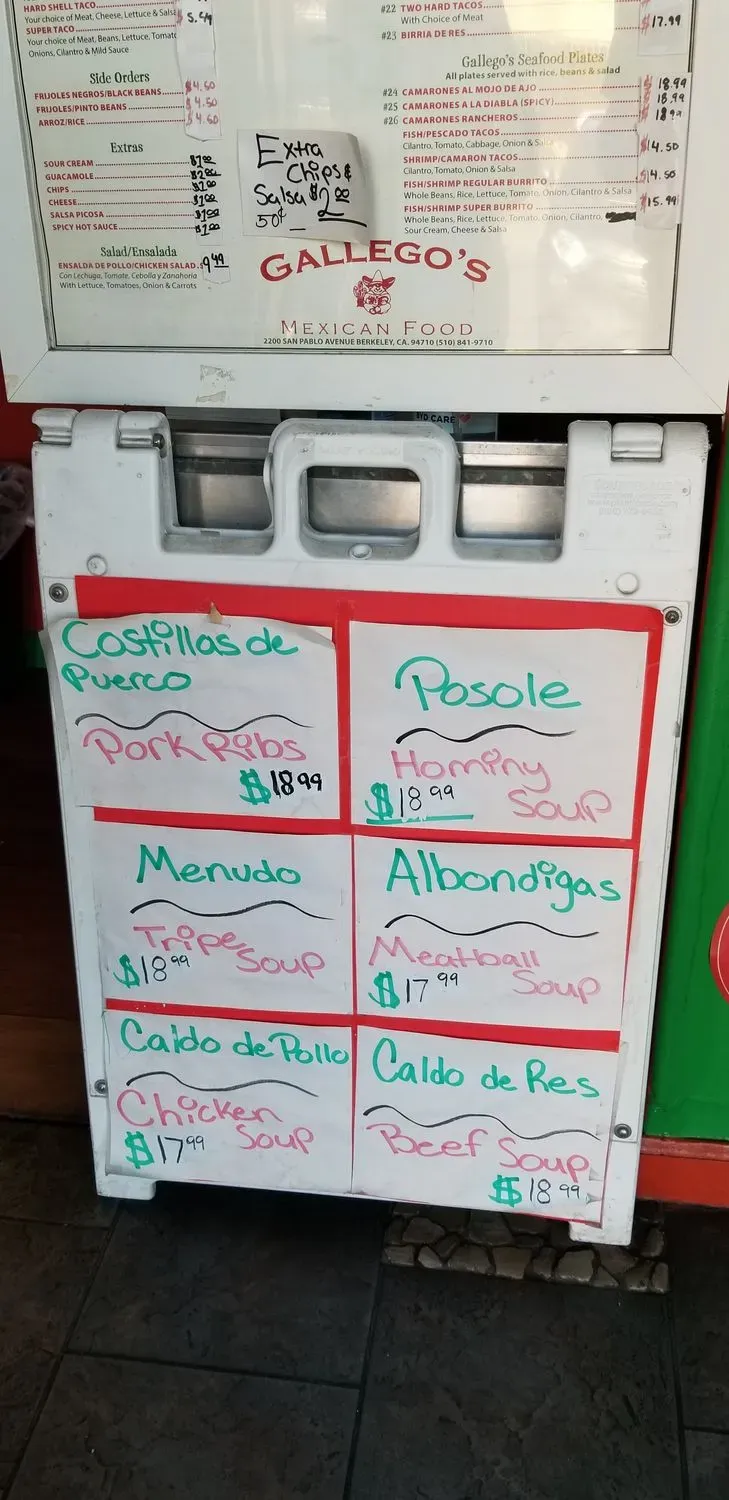 HARD SHELL TACO
Your choice of Meat, Cheese, Lettuce & Salsa
SUPER TACO
Your choice of Meat, Beans, Lettuce, Tomato
Onions, Cilantro & Mild Sauce
Side Orders
FRIJOLES NEGROS/BLACK BEANS $4.50
FRIJOLES/PINTO BEANS $4.50
ARROZ/RICE $4.50
Extras
SOUR CREAM $1.00
GUACAMOLE $2.00
CHIPS $1.00
CHEESE $1.00
SALSA PICOSA $1.00
SPICY HOT SAUCE $1.00
Salad/Ensalada
ENSALDA DE POLLO/CHICKEN SALAD. 9.49
Con Lechuga, Tomate, Cebolla y Zanahoria
With Lettuce, Tomatoes, Onion & Carrots
Extra
Chips &
Salsa $2.00
50¢
#22 TWO HARD TACOS
With Choice of Meat
#23 BIRRIA DE RES $17.99
Gallego's Seafood Plates
All plates served with rice, beans & salad
#24 CAMARONES AL MOJO DE AJO 18.99
#25 CAMARONES A LA DIABLA (SPICY) 18.99
#26 CAMARONES RANCHEROS 18.99
FISH/PESCADO TACOS $14.50
Cilantro, Tomato, Cabbage, Onion & Salsa
SHRIMP/CAMARON TACOS
Cilantro, Tomato, Onion & Salsa
FISH/SHRIMP REGULAR BURRITO $14.50
Whole Beans, Rice, Lettuce, Tomato, Onion, Cilantro & Salsa
FISH/SHRIMP SUPER BURRITO $15.99
Whole Beans, Rice, Lettuce, Tomato, Onion, Cilantro,
Sour Cream, Cheese & Salsa
GALLEGO'S
MEXICAN FOOD
2200 SAN PABLO AVENUE BERKELEY, CA. 94710 (510) 841-9710
Costillas de
Puerco
Pork Ribs
$18.99
Posole
Hominy
$18.99 Soup
Menudo
Tripe
$18.99 Soup
Albondigas
Meatball
$17.99 Soup
Caldo de Pollo
Chicken
$17.99 Soup
Caldo de Res
Beef Soup
$18.99